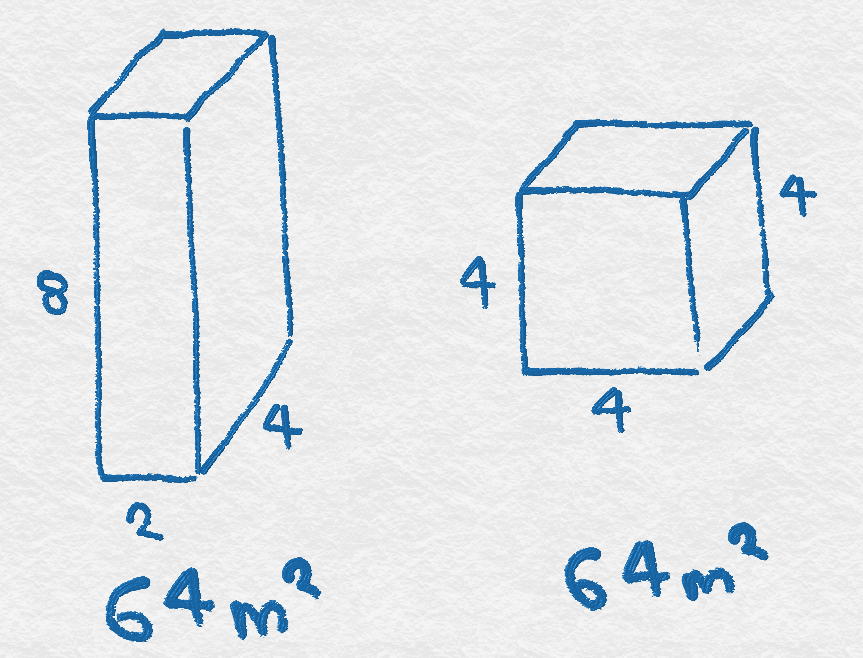 8
4
2
64 m²
4
4
4
64 m²